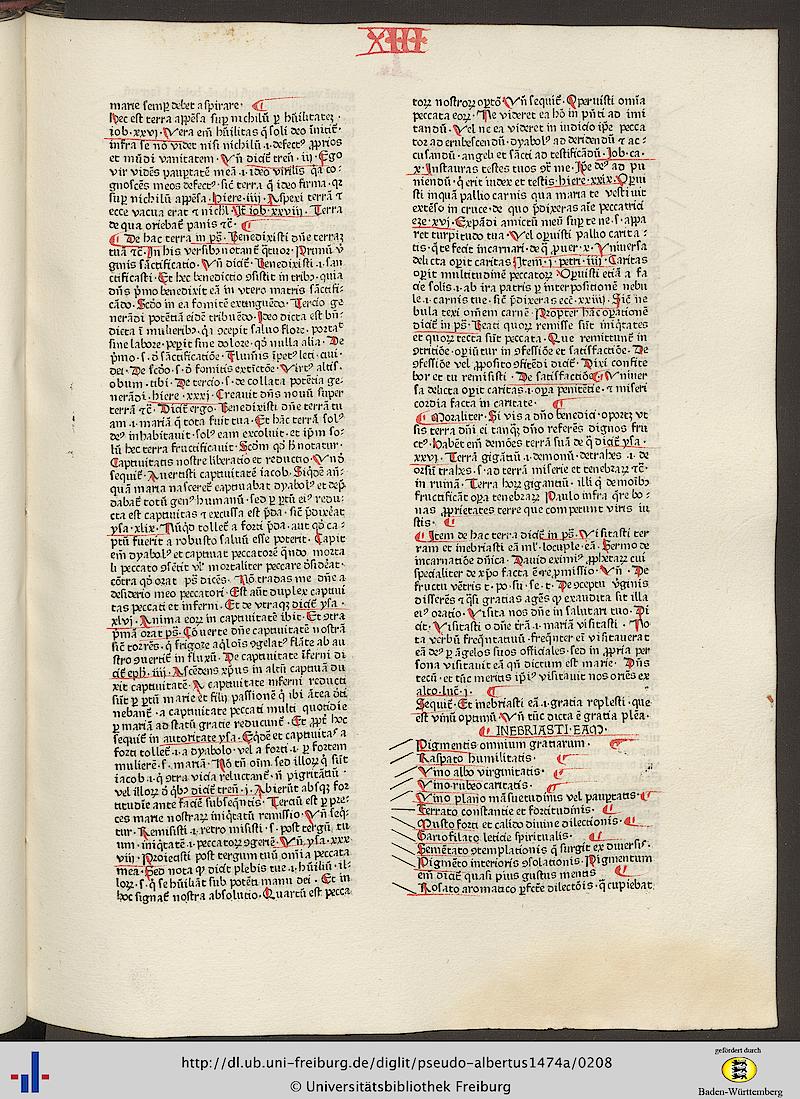 XIII
marie semꝑ debet aspirare·
hec est terra appẽsa suꝑ nichilũ ꝑ hũilitatez·
iob·xxvj· Vera em̃ hũilitas q̃ soli deo ĩnitit̃
infra se nõ videt nisi nichilũ·i·defectꝰ ꝓprios
et mũdi vanitatem· Vñ dicit̃ tren̄·iij· Ego
vir vidẽs pauꝑtatẽ meã·i·ideo virilis q̃a co-
gnoscẽs meos defectꝰ· sic̃ terra q̃ ideo firma·qꝛ
suꝑ nichilũ appẽsa· hiere·iiij· Aspexi terrã ⁊
ecce vacua erat ⁊ nichl̃ Vt iob xxviij· Terra
de qua oriebat̃ panis ⁊c̃·
De hac terra in ps̃· Benedixisti dñe terraz
tuã ⁊c̃· In his versibꝰ notant̃ q̃tuor· Primũ v̄
ginis sãctificatio· Vñ dicit̃· Benedixisti·i·san
ctificasti· Et hec benedictio ꝯsistit in tribꝰ· quia
dñs p̃mo benedixit eã in vtero matris sãctifi-
cãdo· Scðo in ea fomitẽ extinguẽdo· Tercio ge
nerãdi potẽtiã eidẽ tribuẽdo· Ideo dicta est bñ-
dicta ĩ mulieribꝰ· q̃ꝛ ꝯcepit saluo flore· portat̃
sine labore·peꝑit sine dolore· qð nulla alia· De
p̃mo·s·ð sãctificatiõe· Flumĩs ĩpetꝰ leti·ciui·
dei· De scðo·s·ð fomitis extictõe· Virtꝰ altis·
obum·tibi· De tercio·s·de collata potẽtia ge-
nerãdi· hiere·xxxj· Creauit dñs nouũ super
terrã ⁊c̃· Dicit̃ ergo· Benedixisti dñe terrã tu
am·i·mariã q̃ tota fuit tua· Et hãc terrã solꝰ
deꝰ inhabitauit· solꝰ eam excoluit· et ip̃m so-
lũ hec terra fructificauit· Scðm qð h̃ notatur·
Captiuitatis nostre liberatio et reductio· Vnð
sequit̃· Auertisti captiuitatẽ iacob· Siq̃dẽ añ-
quã maria nasceret̃ captiuabat dyabolꝰ et dep̃
dabat̃ totũ genꝰ humanũ· sed ꝑ ꝑtũ eiꝰ redu-
cta est captiuitas ⁊ excussa est p̃da· sic̃ p̃dixẽat
ysa·xlix· Nũq̃d tollet̃ a forti p̃da· aut qð ca-
ptũ fuerit a robusto saluũ esse poterit· Capit
em̃ dyabolꝰ et captiuat peccatorẽ q̃ndo morta
li peccato ꝯsẽtit vl̃ mortaliter peccare ðsidẽat·
cõtra qð orat ps̃ dicẽs· Nõ tradas me dñe a
desiderio meo peccatori· Est aũt duplex captiui
tas peccati et inferni· Et de vtraqꝫ dicit̃ ysa·
xlvj· Anima eoꝝ in captiuitatẽ ibit· Et ꝯtra
p̃mã orat ps̃· Cõuerte dñe captiuitatẽ nostrã
sic̃ torrẽs· q̃ frigore aq̃lois ꝯgelatꝰ flãte ab au
stro ꝯuertit̃ in fluxũ· De captiuitate ĩferni di
cit̃ eph̃·iiij· Ascẽdens xp̃us in altũ captiuã du
xit captiuitatẽ· A captiuitate inferni reducti
sũt ꝑ ꝑtũ marie et filij passionẽ q̃ ibi ãtea ðti
nebant̃· a captiuitate peccati multi quotidie
ꝑ mariã ad statũ gratie reducunt̃· Et ꝓpẽ hoc
sequit̃ in autoritate ysa· Eq̃dẽ et captiuitaſ a
forti tollet̃·i·a dyabolo· vel a forti·i·ꝑ fortem
mulierẽ·s·mariã· Nõ tñ oĩm sed illoꝝ q̃ sũt
iacob·i·q̃ ꝯtra vicia reluctant̃· nõ pigritãtiũ·
vel illoꝝ ð qbꝰ dicit̃ tren̄·j· Abierũt absqꝫ for
titudĩe ante faciẽ subseqñtis· Terciũ est ꝑ pre-
ces marie nostraꝝ iniq̃tatũ remissio· Vñ seq̃-
tur· Remisisti·i·retro misisti·s·post tergũ tu
um·iniq̃tatẽ·i·peccatoꝝ ꝯgeriẽ· Vñ ysa·xxx
viij· Proiecisti post tergum tuũ omĩa peccata
mea· Sed nota qꝫ dicit̃ plebis tue·i·hũiliũ·il-
loꝝ·s·q̃ se hũiliãt sub potẽti manu dei· Et in
hoc signat̃ nostra absolutio· Quartũ est pecca
toꝝ nostroꝝ opẽtõ· Vñ sequit̃· Oꝑuisti omĩa
peccata eoꝝ· Ne videret ea hõ in p̃nti ad imi
tandũ· Vel ne ea videret in iudicio ip̃e pecca
tor ad erubescendũ· dyabolꝰ ad deridendũ ⁊ ac-
cusandũ· angeli et sãcti ad testificãdũ· Iob·ca·
x· Instauras testes tuos ꝯt̃ me· Ip̃e deꝰ ad pu
niendũ· q̃ erit iudex et testis· hiere xxix· Oꝑui
sti inquã pallio carnis qua maria te vestiuit
extẽso in cruce· de quo p̃dixeras aĩe peccatrici
eze·xvj· Expãdi amictũ meũ suꝑ te ne·s·appa
ret turpitudo tua· Vel oꝑuisti pallio carita-
tis· q̃ te fecit incarnari· de q̃ ꝓuer·x· Vniuersa
delicta oꝑit caritas Item·j·petri·iiij· Caritas
oꝑit multitudinẽ peccatoꝝ Oꝑuisti etiã a fa
cie solis·i·ab ira patris ꝑ interpositionẽ nebu
le·i·carnis tue· sic̃ p̃dixeras ecc̃·xxiiij· Sic̃ ne
bula texi omẽm carnẽ· Propter hãc oꝑationẽ
dicit̃ in ps̃· Beati quoꝝ remisse sũt iniq̃tates
et quoꝝ tecta sũt peccata· Que remittunt̃ in
ꝯtritiõe·oꝑiũtur in ꝯfessiõe et satisfactiõe· De
ꝯfessiõe vel ꝓposito ꝯfitẽdi dicit̃· Dixi confite
bor et tu remisisti · De satisfactiõe· Vniuer
sa delicta oꝑit caritas·i·oꝑa penitẽtie·⁊ miseri
cordia facta in caritate·
Moraliter· Si vis a dño benedici·oportꝫ vt
sis terra dñi ei tanqꝫ dño referẽs dignos fru
ctꝰ· habẽt em̃ demões terrã suã de q̃ dicit̃ ysa·
xxvj· Terrã gigãtũ·i·demonũ·detrahes·i·de
orsũ trahes·s·ad terrã miserie et tenebraꝝ ⁊c̃·
in ruinã· Terra hoꝝ gigantũ· illi q̃ demoĩbꝰ
fructificãt oꝑa tenebraꝝ Paulo infra q̃re bo-
nas ꝓprietates terre que competunt viris iu
stis·
Item de hac terra dicit̃ in ps̃· Visitasti ter
ram et inebriasti eã ml̃·locuple·eã· Sermo de
incarnatiõe dñica· Dauid eximiꝰ ꝓphetaꝝ cui
specialiter de xp̃o facta ẽ re ꝑmissio· Vñ· De
fructu vẽtris t·po·suꝑ se·t· De ꝯceptu v̄ginis
disserẽs ⁊ q̃si gratias agẽs qꝫ exaudita sit illa
eiꝰ oratio· Visita nos dñe in salutari tuo· Di
cit· Visitasti o dñe trã·i·mariã visitasti · No
ta verbũ freq̃ntatiuũ· freq̃nter em̃ visitauerat
eã deꝰ ꝑ ãngelos suos officiales· sed in ꝓpria per
sona visitauit eã qñ dictum est marie· Dñs
tecũ· et tũc meritis ip̃iꝰ visitauit nos oriẽs ex
alto·luc̃·j·
Sequit̃· Et inebriasti eã·i·gratia replesti·que
est vinũ optimũ· Vñ tũc dicta ẽ gratia plẽa·
INEBRIASTI·EAM·
Pigmentis omnium gratiarum·
Raspato humilitatis·
Vino albo virginitatis·
Vino rubeo caritatis·
Vino plano mãsuetudinis vel pauꝑtatis·
Ferrato constantie et fortitudinis·
Musto forti et calido diuine dilectionis·
Gariofilato leticie spiritualis·
Semẽtato ꝯtemplationis q̃ surgit ex diuersis·
Pigmẽto interioris ꝯsolationis· Pigmentum
em̃ dicit̃ quasi pius gustus mentis
Rosato aromatico ꝑfcẽ dilectõis· q̃ cupiebat
http://dl.ub.uni-freiburg.de/diglit/pseudo-albertus1474a/0208
© Universitätsbibliothek Freiburg
gefördert durch
Baden-Württemberg